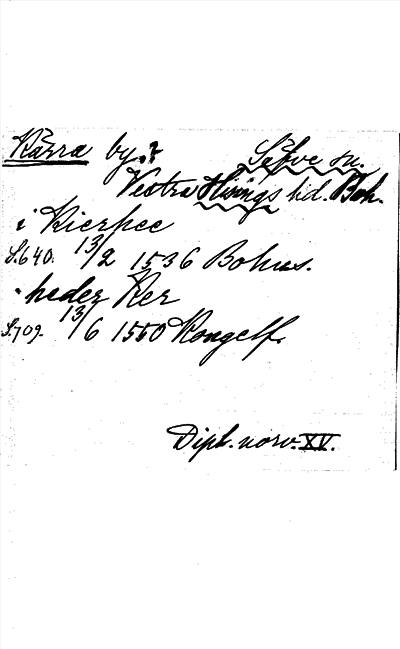 Kärra by.?
Säfve sn.
Vestra Hisings hd. Boh.
i Kierhee
S. 640. 13/2 1536 Bohus.
" heder Ker
S. 709. 13/6 1550 Kongelf.
Dipl. norv. XV.